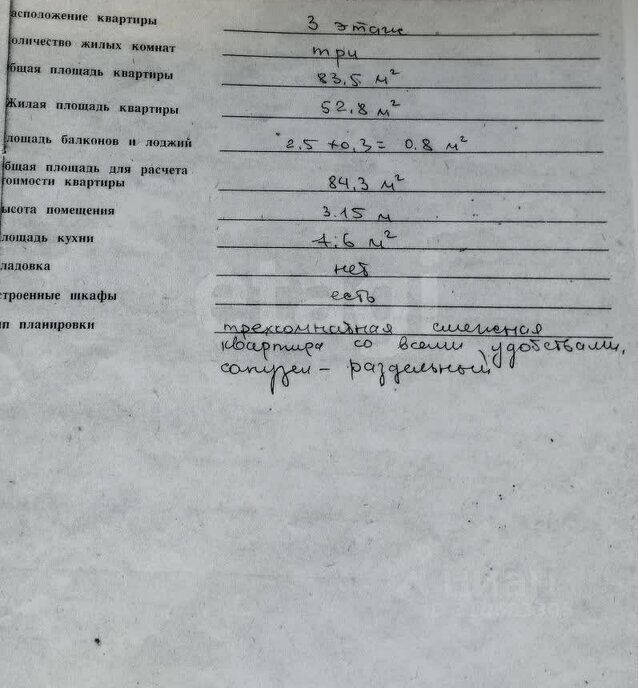 асположение квартиры 3 этаж
оличество жилых комнат три
бщая площадь квартиры 83,5 м²
Жилая площадь квартиры 52.8 м²
лощадь балконов и лоджий 2.5 × 0,3 = 0.8 м²
бщая площадь для расчета
тоимости квартиры 84,3 м²
ысота помещения 3.15 м
лощадь кухни 7.6 м²
ладовка нет
строенные шкафы есть
ип планировки трехкомнатная смежная
квартира со всеми удобствами,
санузел – раздельный
циан